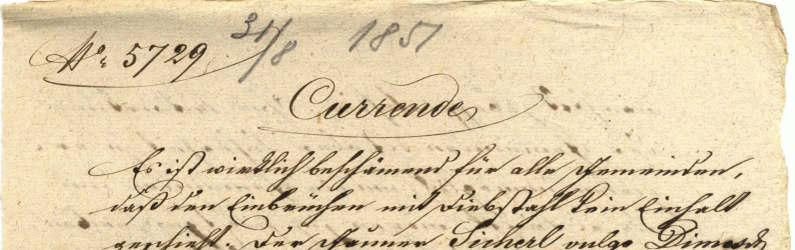 No: 5729 31/8 1851
Currende
Es ist wirklich beschämend für alle Gemeinden,
daß den Einbrüchen mit Diebstahl kein Einhalt
geschieht. Der Gauner Sicherl vulgo